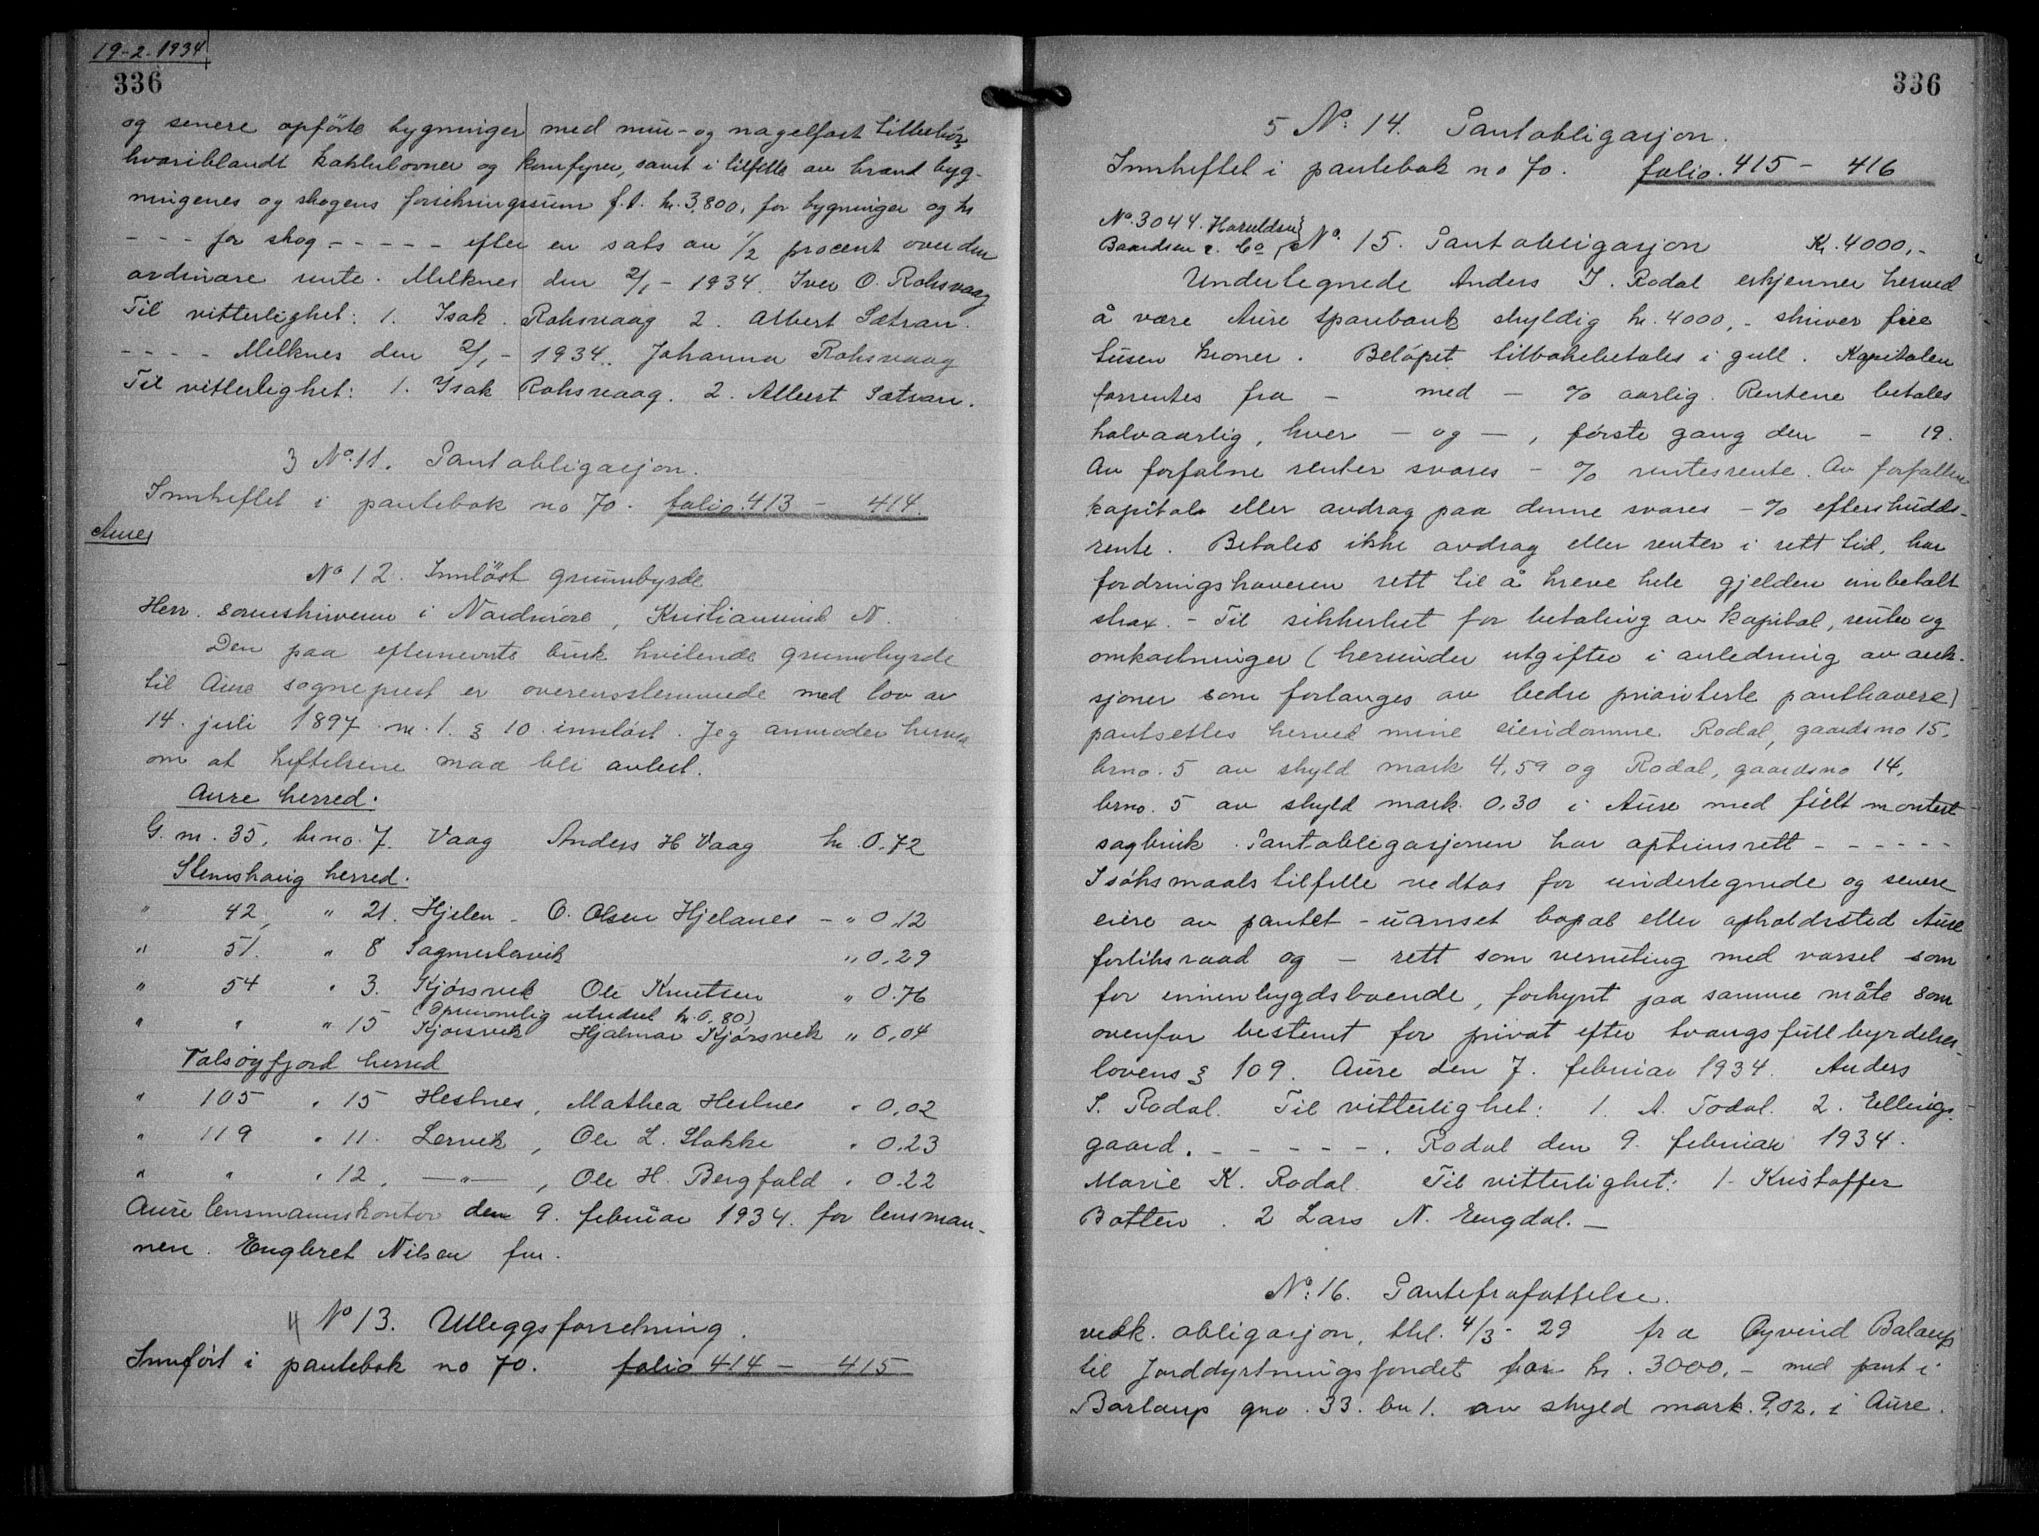 19-2-1934
336
og senere opførte bygninger med mur- og nagelfast tilbehør,
hvoriblandt kakkelovner og komfyrer, samt i tilfelle av brand byg-
ningenes og skogens forsikringssum f.t. kr. 3,800, for bygninger og kr
- - - for skog - - - - - efter en sats av 1/2 procent over den
ordinære rente. Melknes den 2/1 - 1934. Iver O. Rohsvaag
Til vitterlighet: 1. Isak Rohsvaag 2. Albert Sætran.
- - - - Melknes den 2/1 - 1934. Johanna Rohsvaag
Til vitterlighet: 1. Isak Rohsvaag. 2. Albert Sætran.
3 No. 11. Pantobligasjon.
Innheftet i pantebok no 70. folio. 413 - 414.
Aure
No 12. Innløst grunnbyrde
Herr sorenskriveren i Nordmøre, Kristiansund N.
Den paa efternevnte bruk hvilende grunnbyrde
til Aure sogneprest er overensstemmende med lov av
14. juli 1897 nr. 1. § 10 innløst. Jeg anmoder herved
om at heftelsene maa bli avlest.
Aure herred.
G. nr. 35, brno. 7. Vaag Anders H Vaag kr. 0,72
Stemshaug herred.
" 42, " 21. Hjelen - O. Olsen Hjelanes - " 0,12
" 51. " 8 Sagmestervik " 0,29
" 54 " 3. Kjørsvik Ole Knutsen " 0,76
(Oprinnelig utredet kr 0,80)
" " " 15 Kjørsvik Hjalmar Kjørsvik " 0,04
Valsøyfjord herred
" 105 " 15 Hestnes, Mathea Hestnes " 0,02
" 119 " 11. Lervik, Ole L. Stokke " 0,23
" " " 12. -"-, Ole H. Bergfald " 0,22
Aure lensmannskontor den 9. februar 1934. for lensman-
nen. Engbret Nilsen fm.
4 No 13. Utleggsforretning.
Innført i pantebok no 70. folio 414 - 415
336
5 No: 14. Pantobligasjon.
Innheftet i pantebok no 70. folio. 415 - 416
No. 3044. Haraldsen
Baardsen & Co. No. 15. Pantobligasjon Kr. 4000,-
Undertegnede Anders I. Rodal erkjenner herved
å være Aure sparebank skyldig kr. 4000,- skriver fire
tusen kroner. Beløpet tilbakebetales i gull. Kapitalen
forrentes fra - med - % aarlig. Rentene betales
halvaarlig, hver - og -, første gang den - 19.
Av forfalne renter svares - % rentesrente. Av forfallen
kapital eller avdrag paa denne svares - % efterskudds-
rente. Betales ikke avdrag eller renter i rett tid, har
fordringshaveren rett til å kreve hele gjelden innbetalt
strax. - Til sikkerhet for betaling av kapital, renter og
omkostninger (herunder utgifter i anledning av auk-
sjoner som forlanges av bedre prioriterte panthavere)
pantsettes herved mine eiendomme Rodal, gaardsno 15,
brno. 5 av skyld mark 4,59 og Rodal, gaardsno 14,
brno. 5 av skyld mark. 0,30 i Aure med fullt montert
sagbruk. Pantobligasjonen har optrinsrett - - - - - -
I søksmaals tilfelle vedtas for undertegnede og senere
eiere av pantet - uanset bopæl eller opholdssted Aure
forliksraad og - rett som verneting med varsel som
for innenbygdsboende, forkynt paa samme måte som
ovenfor bestemt for privat efter tvangsfullbyrdelses-
lovens § 109. Aure den 7. februar 1934. Anders
I. Rodal. Til vitterlighet: 1. A. Todal. 2. Ellings-
gaard. - - - - - . Rodal den 9. februar 1934.
Marie K. Rodal. Til vitterlighet: 1. Kristoffer
Botten. 2 Lars N. Engdal. -
No: 16. Pantefrafattelse.
vedk. obligasjon, thl. 4/3 - 29 fra Øyvind Balaup
til Jorddyrkningsfondet for kr. 3000,- med pant i
Barlaup gno. 33. bn 1. av skyld mark. 9,02. i Aure.